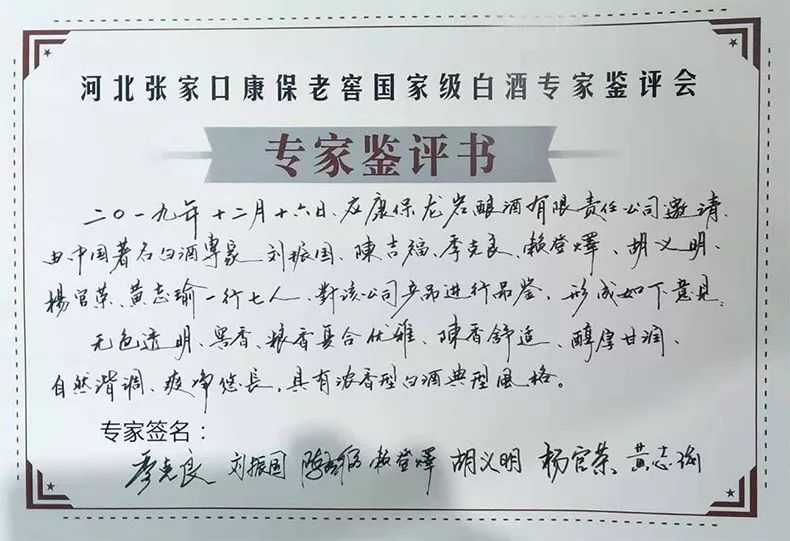 河北张家口康保老窖国家级白酒专家鉴评会
专家鉴评书
二〇一九年十二月十六日,应康保龙岩酿酒有限责任公司邀请,
由中国著名白酒專家 刘振国、陳吉福、季克良、赖登燡、胡义明、
楊官荣、黄志瑜一行七人,對該公司产品进行品鉴,形成如下意見:
无色透明、窖香、粮香复合优雅、陳香舒适、醇厚甘润、
自然谐调、爽净悠長,具有浓香型白酒典型風格。
专家签名:
季克良 刘振国 陈吉福 赖登燡 胡义明 杨官荣 黄志瑜